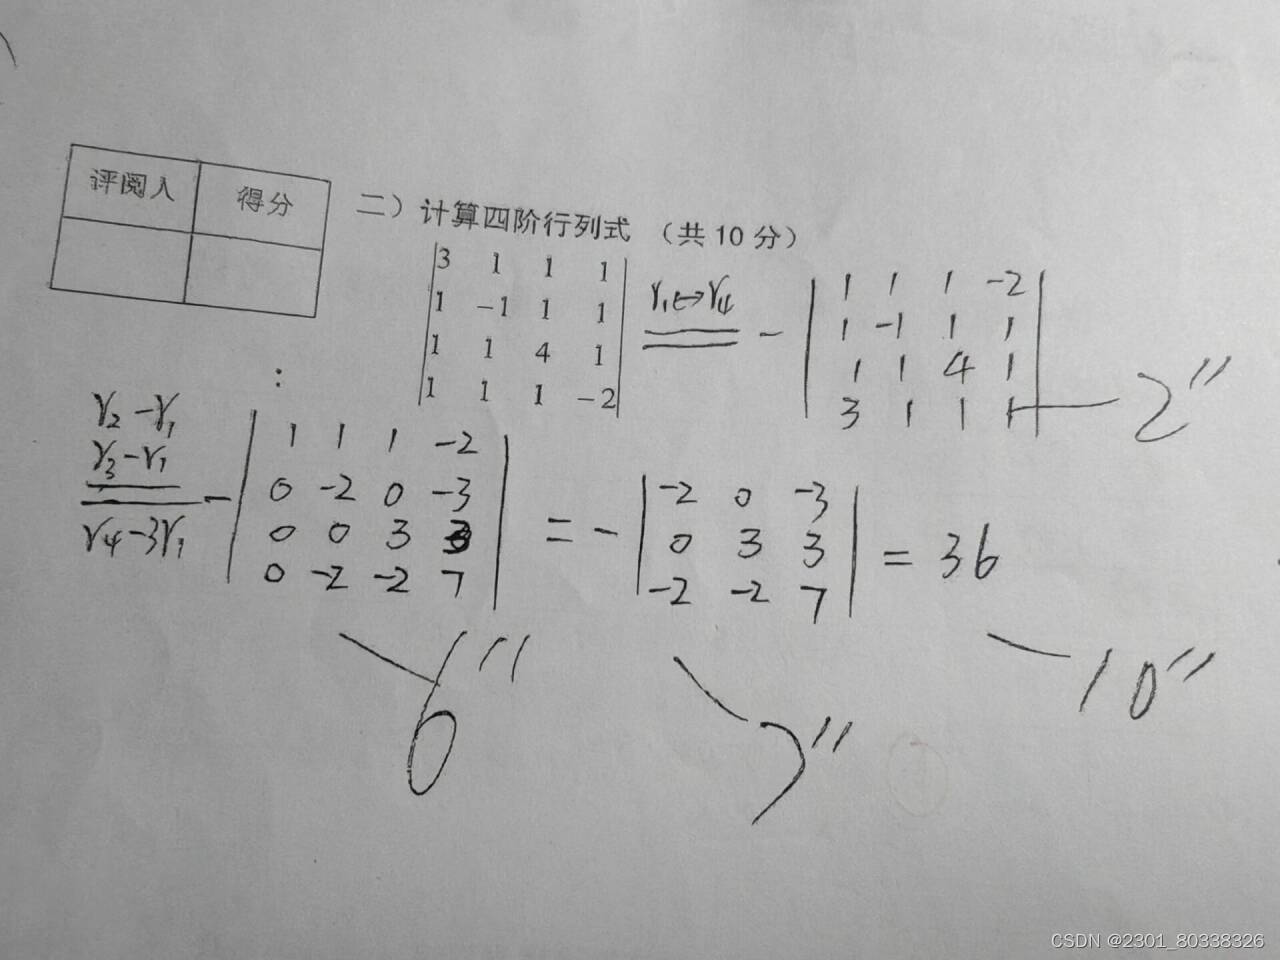 评阅人 得分
二）计算四阶行列式 （共 10 分）
3 1 1 1
1 -1 1 1
1 1 4 1
1 1 1 -2
r₁↔r₄
-
1 1 1 -2
1 -1 1 1
1 1 4 1
3 1 1 1
2″
:
r₂-r₁
r₃-r₁
r₄-3r₁
-
1 1 1 -2
0 -2 0 -3
0 0 3 3
0 -2 -2 7
= -
-2 0 -3
0 3 3
-2 -2 7
= 36
6″
7″
10″
CSDN @2301_80338326